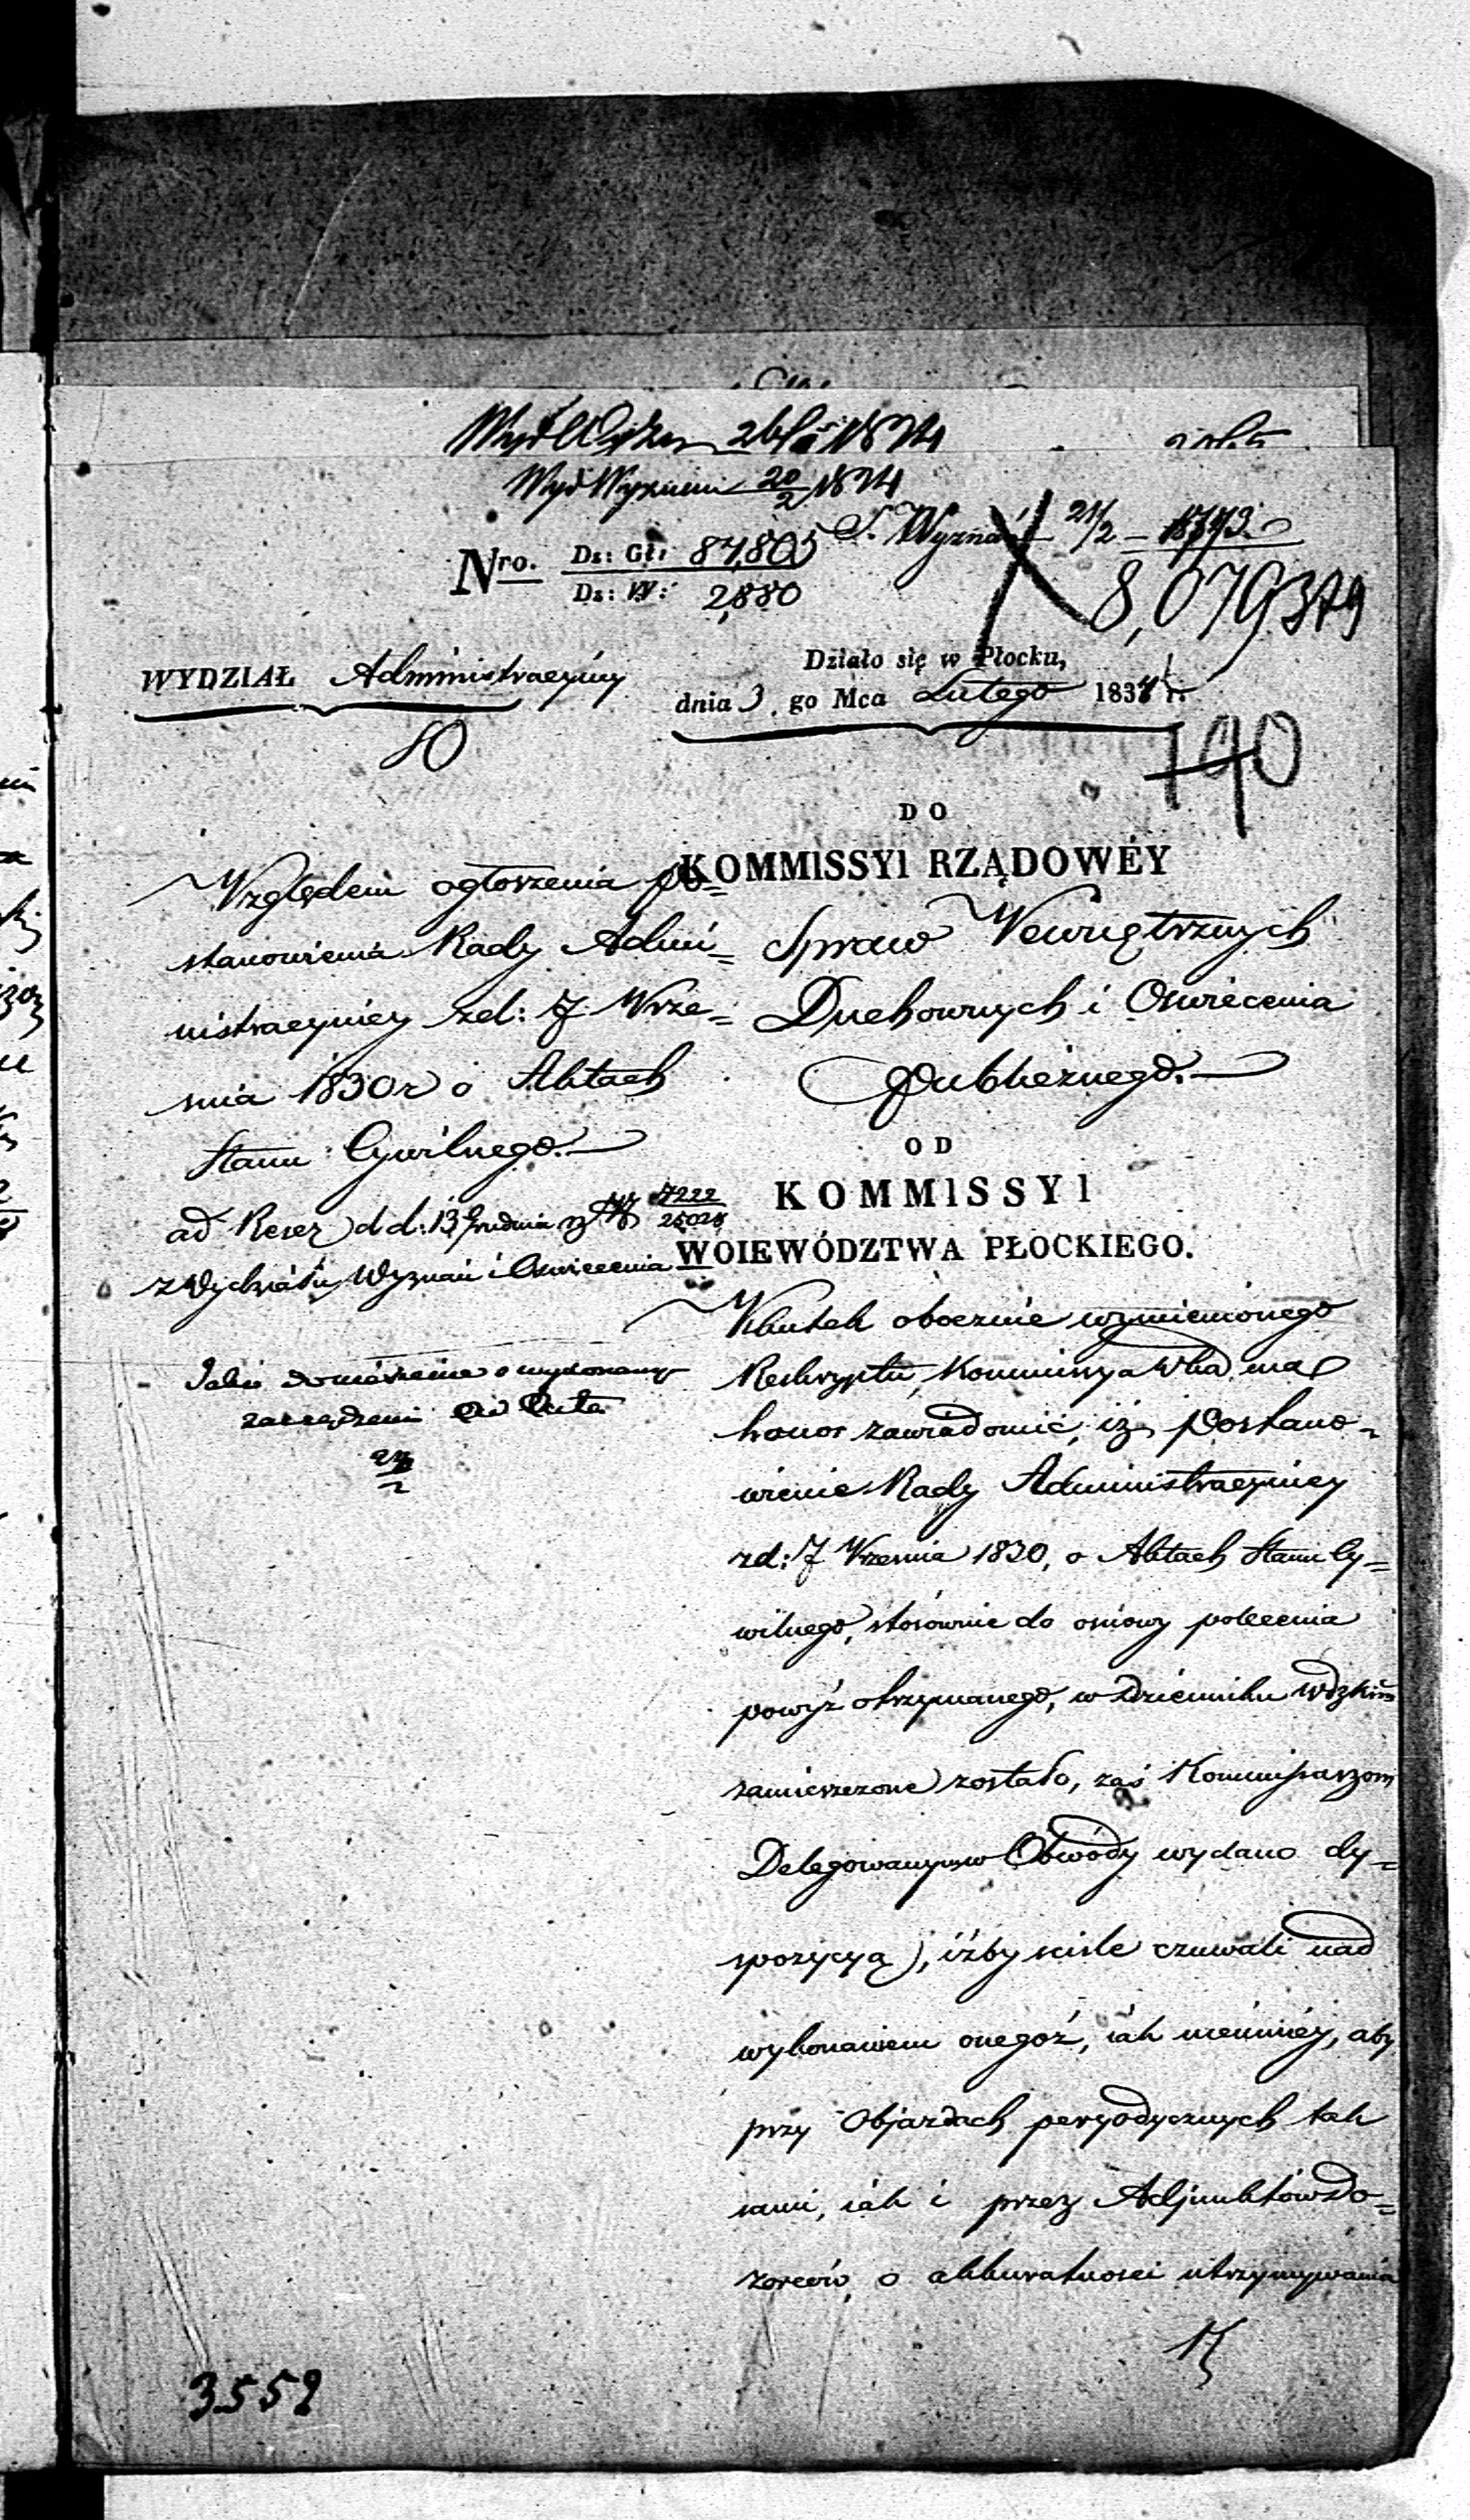 Wyd Wyznań 20/2 1834
S. Wyznań 21/2
Nro. Dz: Gł: 87,805
Dz: W: 2,880
8,079 379
WYDZIAŁ Administracyiny
Działo się w Płocku,
dnia 3. go Mca Lutego 1834 r.
80
140
DO
KOMMISSYI RZĄDOWÉY
Spraw Wewnętrznych
Duchownych i Oświecenia
Publicznego.
OD
KOMMISSYI
WOIEWÓDZTWA PŁOCKIEGO.
Względem ogłoszenia po=
stanowienia Rady Admi=
nistracyiney zd: 7 Wrze=
śnia 1830 r o Aktach
Stanu Cywilnego.
ad Rescr d d: 13 Grudnia 7222/25028
z Wydziału Wyznań i Oświecenia
Jako doniesienie o wykonanym
zarządzeniu ad Acta
Wskutek obocznie wymienionego
Reskryptu, Kommissya Wdzka ma
honor zawiadomić, iż Postano=
wienie Rady Administracyiney
zd: 7 Września 1830, o Aktach Stanu Cy=
wilnego, stósownie do osnowy polecenia
powyż otrzymanego, w Dzienniku Wdzkim
zamieszczone zostało, zaś Kommissarzom
Delegowanym w Obwody wydano dy=
spozycyą, iżby ściśle czuwali nad
wykonaniem onegoż, iak niemniéy, aby
przy objazdach peryodycznych tak
sami, iak i przez Adjunktów Do=
zorców, o akkuratności utrzymywania
3552